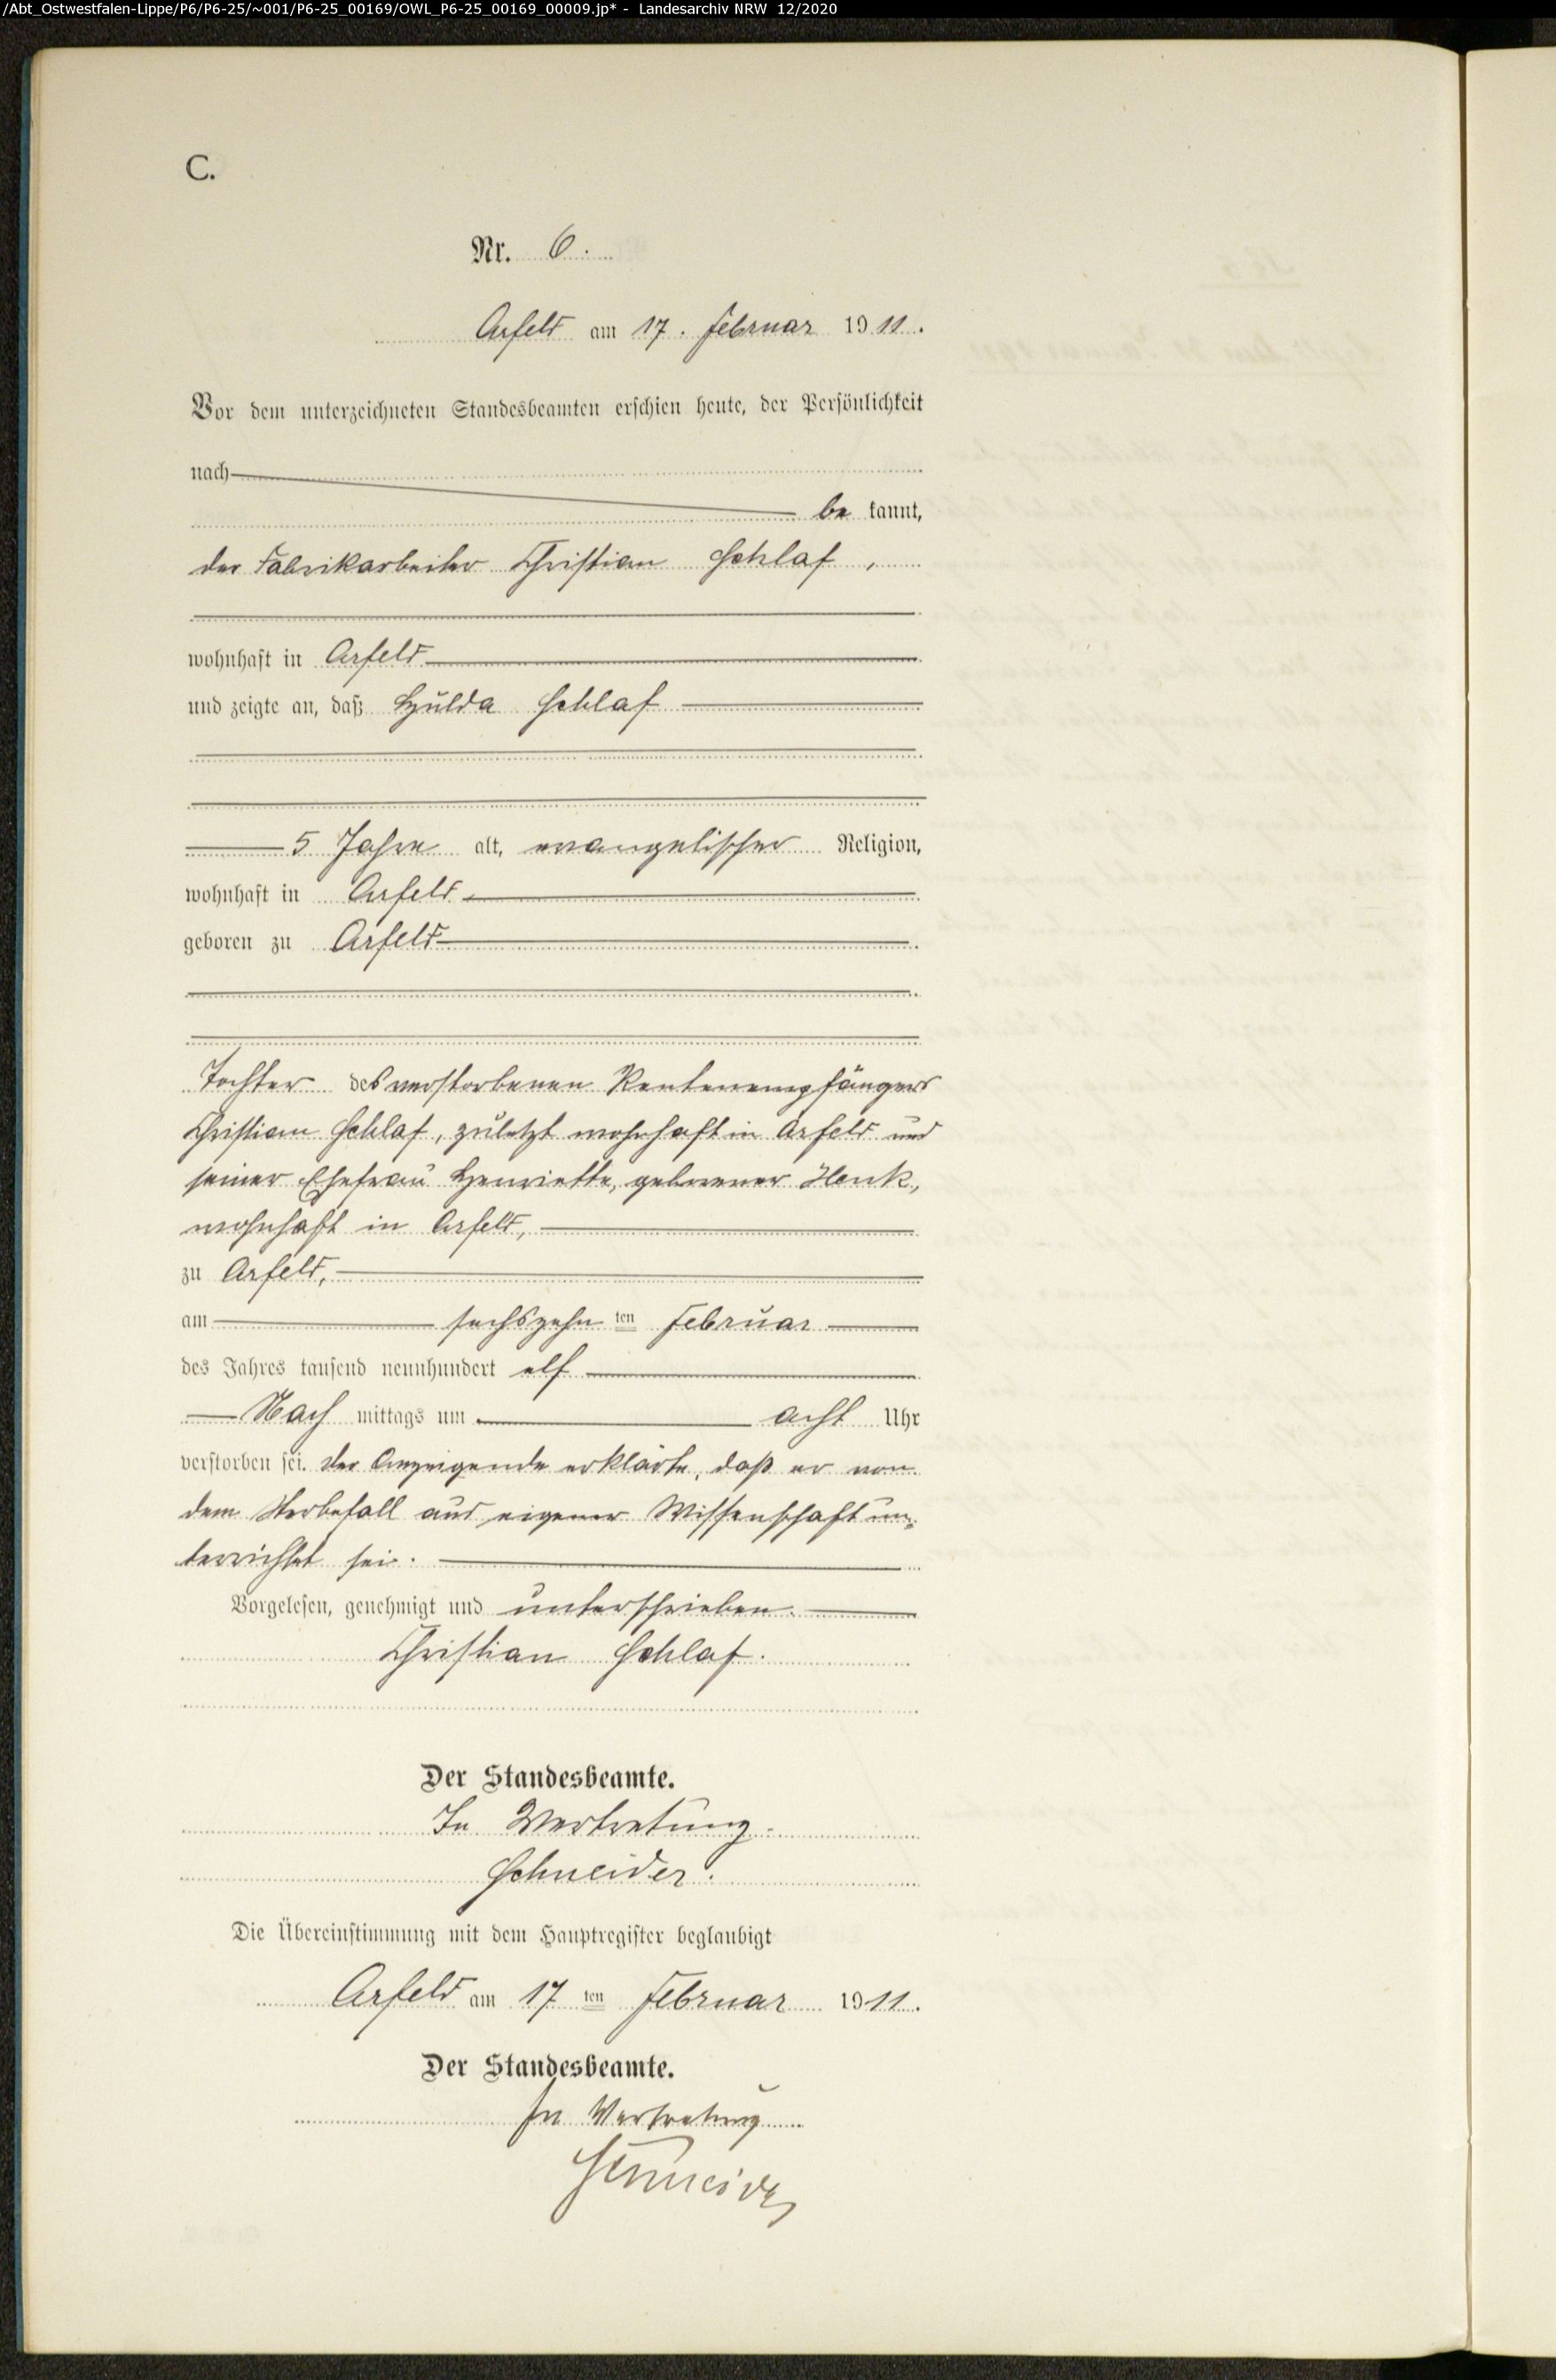 /Abt_Ostwestfalen-Lippe/P6/P6-25/~001/P6-25_00169/OWL_P6-25_00169_00009.jp* - Landesarchiv NRW 12/2020
C.
Nr. 6.
Arfeld am 17. Februar 1911.
Vor dem unterzeichneten Standesbeamten erschien heute, der Persönlichkeit
nach
be kannt,
der Fabrikarbeiter Christian Schlaf,
wohnhaft in Arfeld
und zeigte an, daß Hulda Schlaf
5 Jahre alt, evangelischer Religion,
wohnhaft in Arfeld,
geboren zu Arfeld
Tochter des verstorbenen Rentenempfängers
Christian Schlaf, zuletzt wohnhaft in Arfeld und
seiner Ehefrau Henriette, geborener Henk,
wohnhaft in Arfeld,
zu Arfeld,
am sechszehn ten Februar
des Jahres tausend neunhundert elf
Nach mittags um acht Uhr
verstorben sei. Der Anzeigende erklärte, daß er von
dem Sterbefall aus eigener Wissenschaft un-
terrichtet sei.
Vorgelesen, genehmigt und unterschrieben.
Christian Schlaf.
Der Standesbeamte.
In Vertretung.
Schneider.
Die Übereinstimmung mit dem Hauptregister beglaubigt
Arfeld am 17 ten Februar 1911.
Der Standesbeamte.
In Vertretung
Schneider